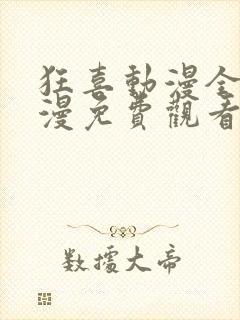 狂喜動漫全
漫免費觀看
数據大帝